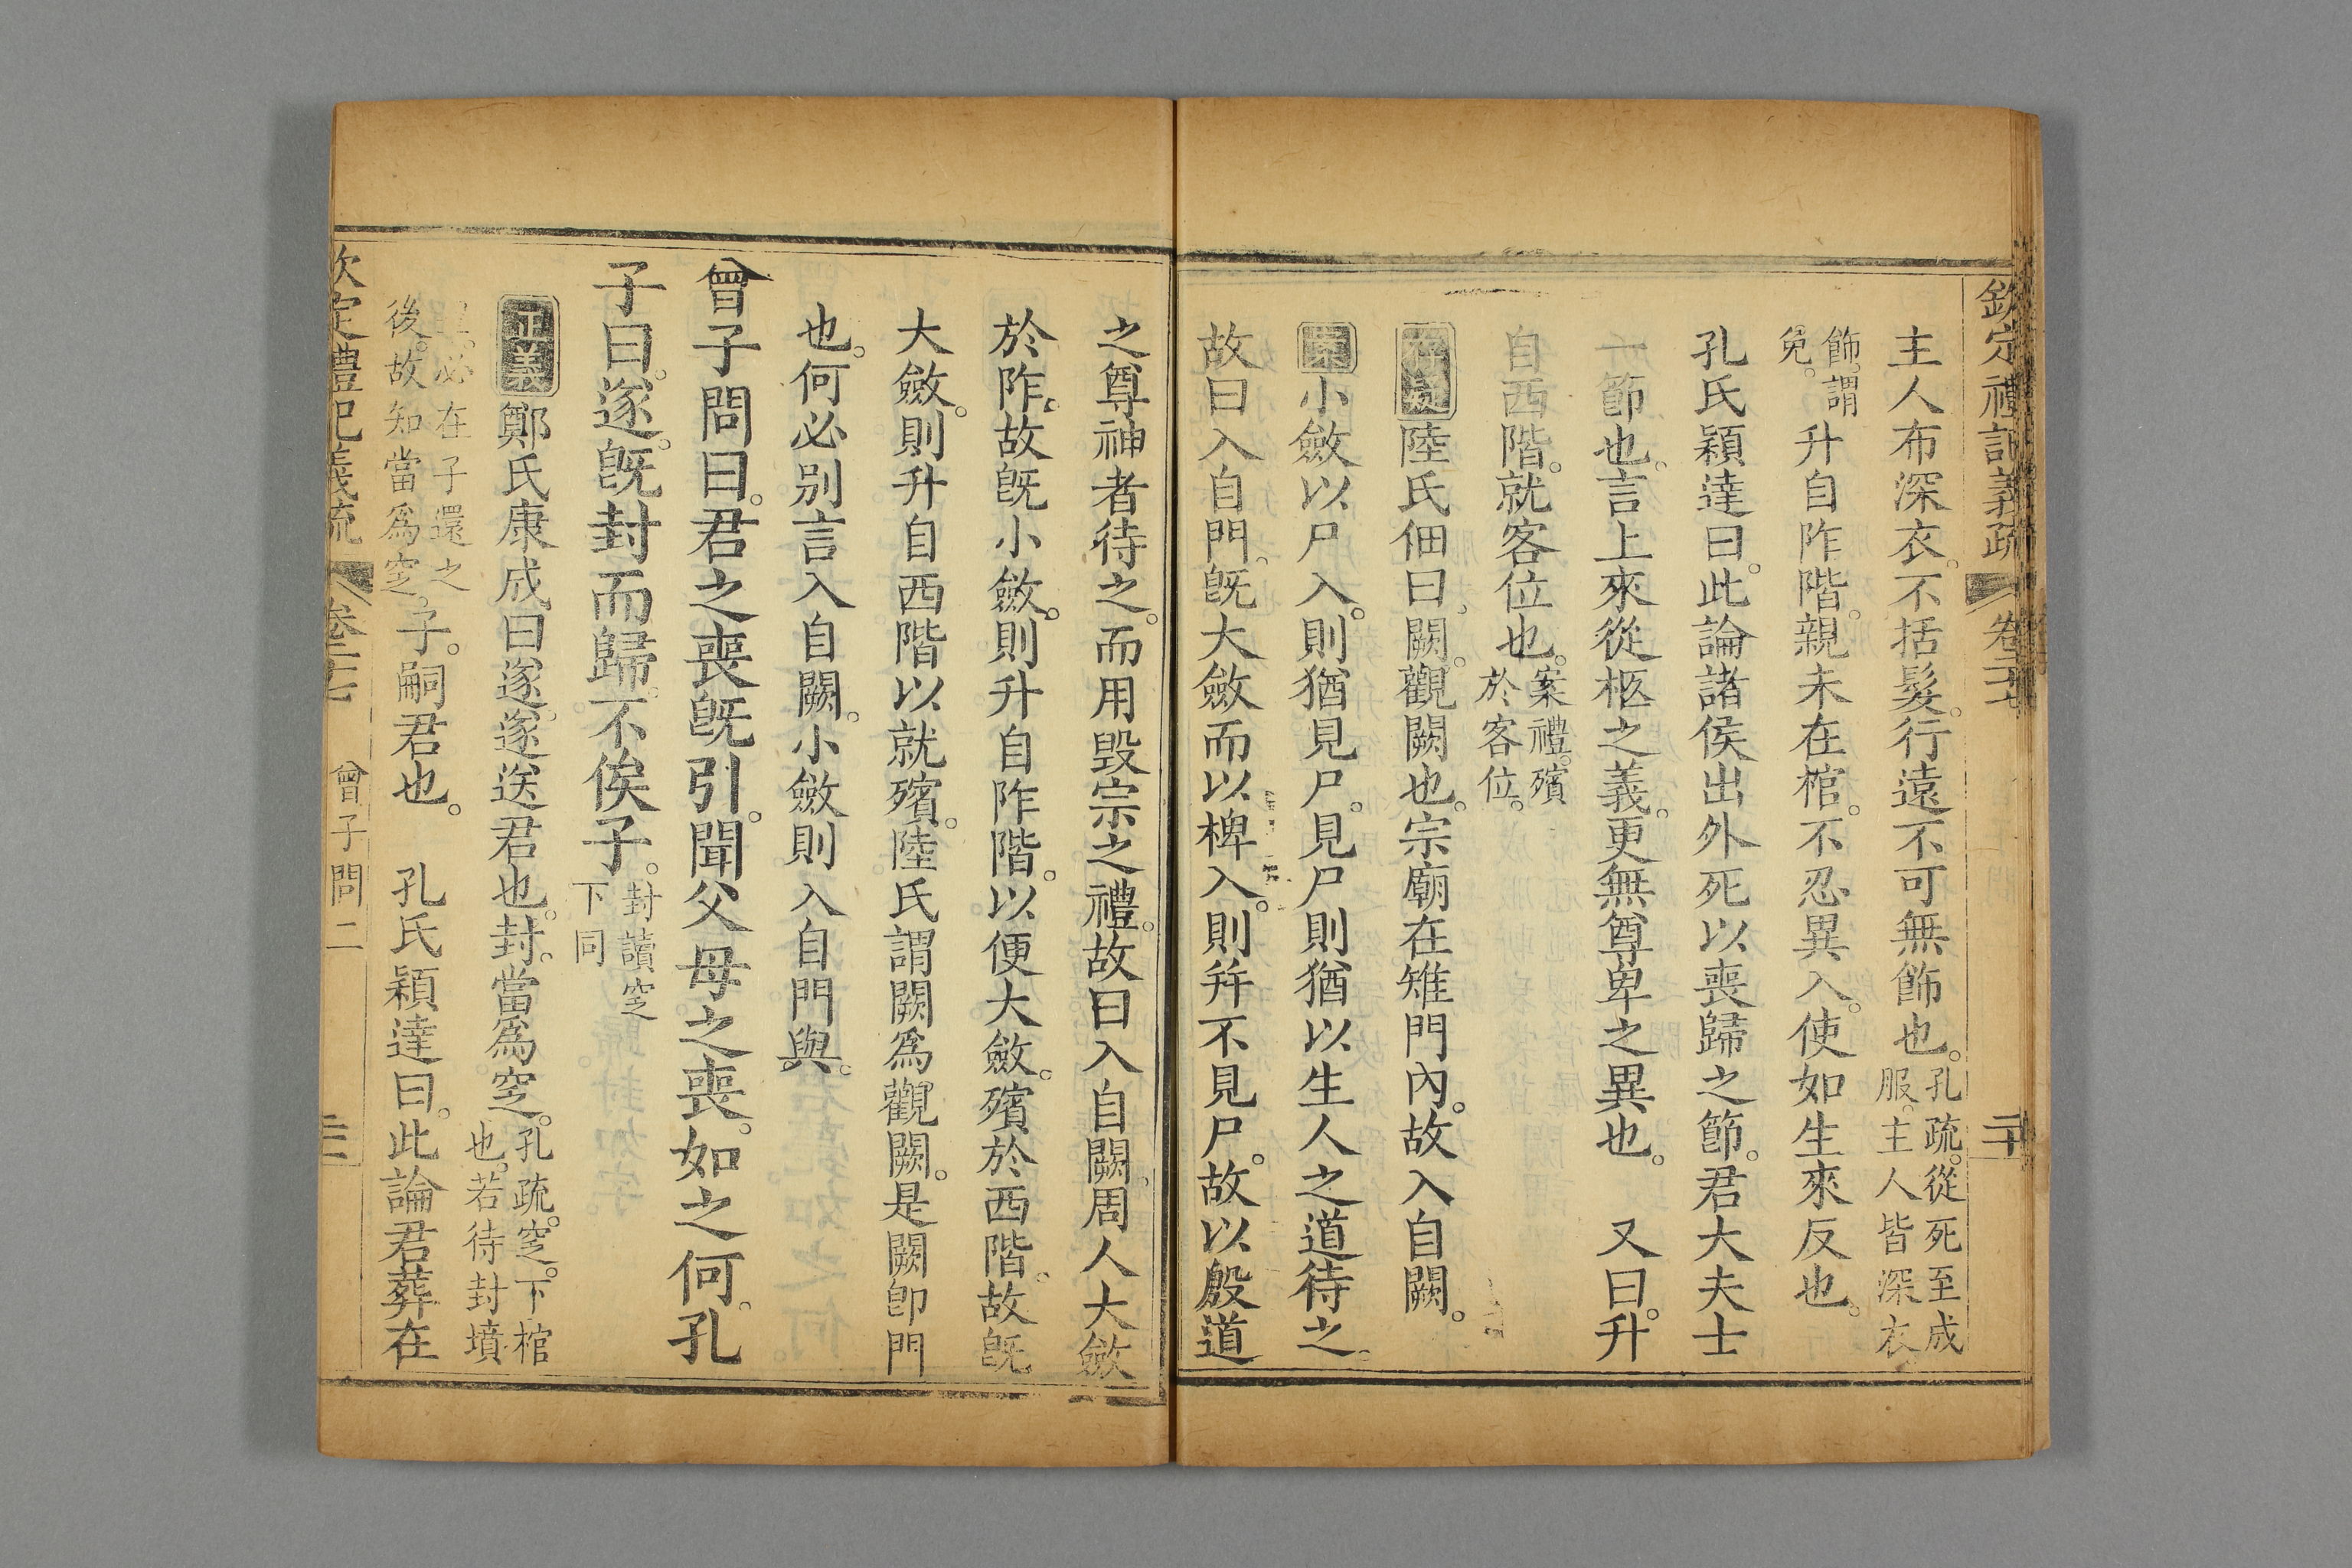 欽定禮記義疏 卷二十七 二十
主人布深衣。不括髮。行遠不可無飾也。孔疏。從死至成服。主人皆深衣。
飾。謂免。升自阼階。親未在棺。不忍異入。使如生來反也。
孔氏穎達曰。此論諸侯出外死以喪歸之節。君大夫士
一節也。言上來從柩之義。更無尊卑之異也。 又曰。升
自西階。就客位也。案禮。殯於客位。
存疑 陸氏佃曰、闕。觀闕也。宗廟在雉門內。故入自闕。
案 小斂以尸入。則猶見尸。見尸則猶以生人之道待之。
故曰入自門。旣大斂而以椑入。則并不見尸。故以殷道
之尊神者待之。而用毀宗之禮。故曰入自闕。周人大斂
於阼。故旣小斂。則升自阼階。以便大斂。殯於西階。故旣
大斂。則升自西階以就殯。陸氏謂闕爲觀闕。是闕卽門
也。何必别言入自闕。小斂則入自門與。
曾子問曰。君之喪旣引。聞父母之喪。如之何。孔
子曰。遂。旣封而歸。不俟子。封讀窆下同
正義 鄭氏康成曰。遂。遂送君也。封。當爲窆。孔疏。窆。下棺也。若待封墳
必在子還之後。故知當爲窆。子。嗣君也。 孔氏穎達曰。此論君葬在
欽定禮記義疏 卷二十七 曾子問二